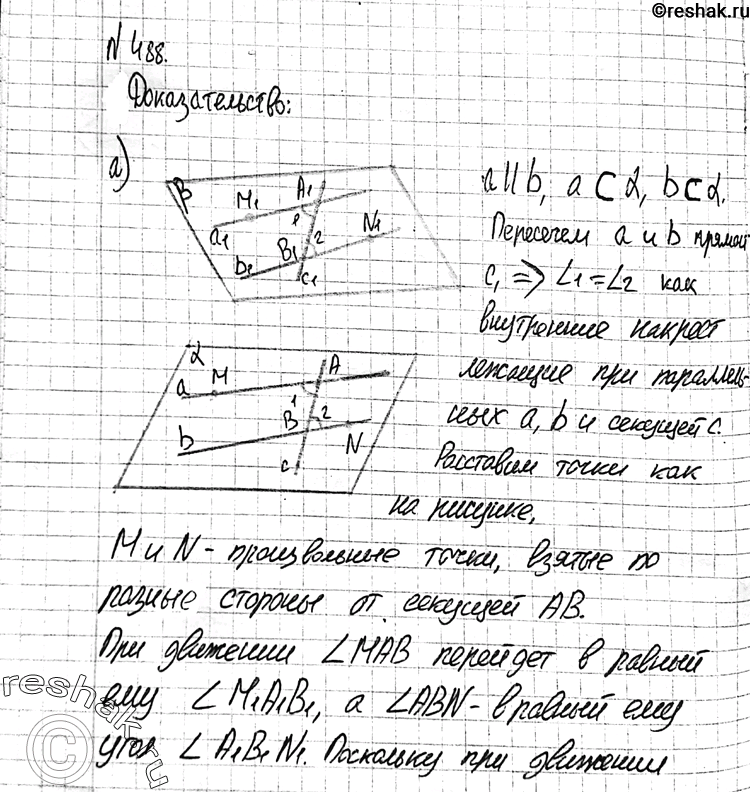 ©reshak.ru
N 488.
Доказательство:
а)
β M₁ A₁ N₁
a₁ 1
B₁ 2
b₁ c₁
a ∥ b, a ⊂ α, b ⊂ α.
Пересечем a и b прямой
c, ⇒ ∠1 = ∠2 как
внутренние накрест
лежащие при параллель-
ных a, b и секущей c.
Расставим точки как
на рисунке,
α M A
a 1
B 2
b c N
M и N - произвольные точки, взятые по
разные стороны от секущей AB.
При движении ∠MAB перейдет в равный
ему ∠M₁A₁B₁, а ∠ABN - в равный ему
угол ∠A₁B₁N₁. Поскольку при движении
reshak.ru
©